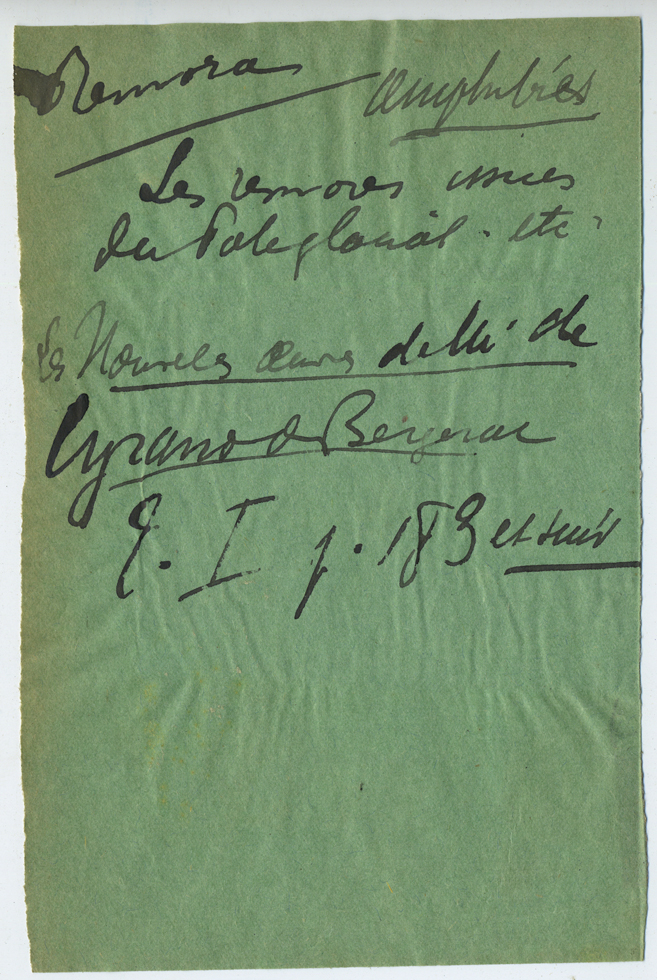 Remora Amphibies
Les remores
du Pole glacial. etc
Les Nouvelles œuvres de Mr de
Cyrano de Bergerac
T. I p. 183 et suiv